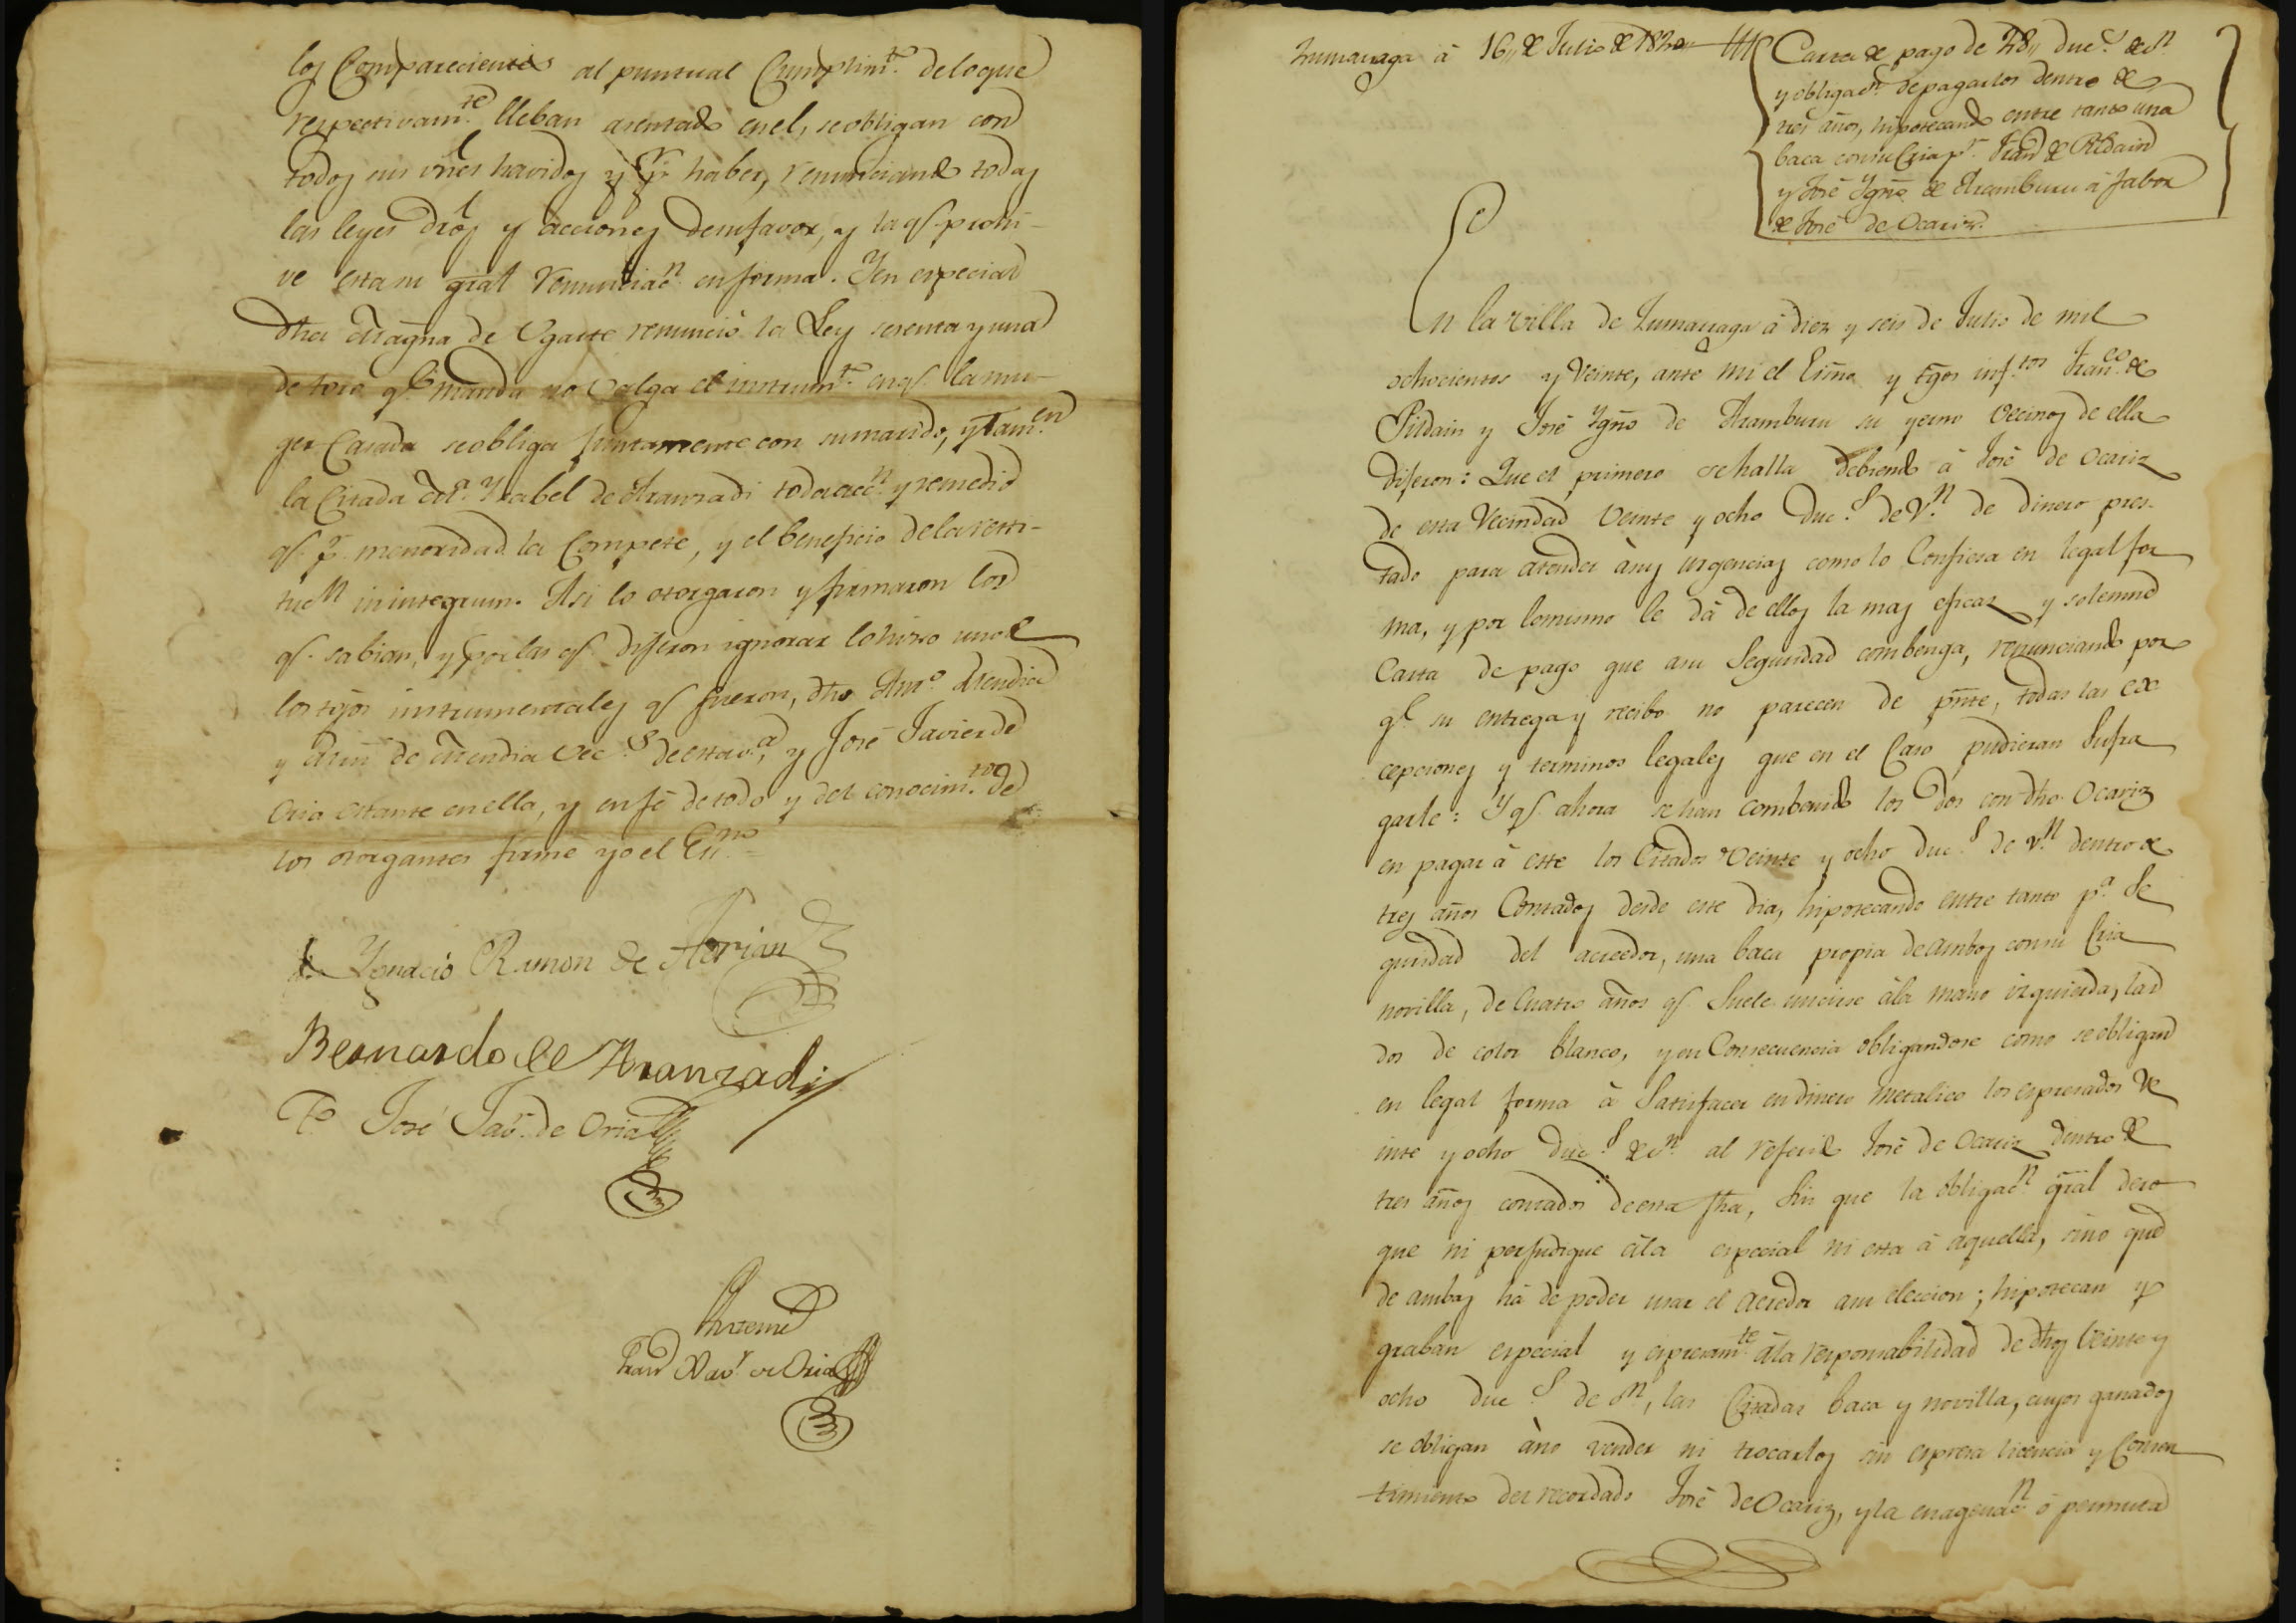 los Comparecientes al puntual Cumplim.to de lo que
respectivam.te lleban asentado en el, se obligan con
todos sus vnes havidos y p.r haber, renunciando todas
las leyes dros y acciones de su favor, y la q.e prohi-
ve esta su gral renunciac.n en forma. Y en especial
dha Magna de Ugarte renunció la Ley sesenta y una
de toro q.e manda no valga el instrum.to en q.e la mu-
ger Casada se obliga juntamente con su marido, y tam.en
la Citada M.a Ysabel de Aranzadi toda acc.n y remedio
q.e p.r menoridad la Compete, y el beneficio de la resti-
tuc.n in integrum. Asi lo otorgaron y firmaron los
q.e sabian, y por las q.e dijeron ignorar lo hizo uno de
los tgos instrumentales q.e fueron, dho Ant.o Mendia
y de Mendia vec.s de esta v.a, y José Javier de
Oria estante en ella, y en fé de todo y del conocim.to de
los otorgantes firme yo el Es.no =
Ygnacio Ramon de
Bernardo de Aranzadi
T.o José Jav.r de Oria
Antemi
Fran.co Xav.r de Oria
Zumarraga à 16,, de Julio de 1820
Carta de pago de 28,, duc.s de v.n
y obligac.n de pagarlos dentro de
tres años, hipotecando entre tanto una
baca con su Cria p.r Fran.co de Pildain
y José Ygno de Aramburu à fabor
de José de Ocariz.
En la Villa de Zumarraga à diez y seis de Julio de mil
ochocientos y Veinte, ante mi el Esno y tgos inf.tos Fran.co de
Pildain y José Ygno de Aramburu su yerno vecinos de ella
dijeron: Que el primero se halla debiendo à José de Ocariz
de esta Vecindad Veinte y ocho Duc.s de V.n de dinero pres-
tado para atender à sus urgencias como lo Confiesa en legal for
ma, y por lo mismo le dà de ellos la mas eficaz y solemne
Carta de pago que a su Seguridad combenga, renunciando por
q.e su entrega y recibo no parecen de pnte, todas las ex
cepciones y terminos legales que en el Caso pudieran Sufra
garle: Y q.e ahora se han combenido los dos con dho Ocariz
en pagar à este los Citados Veinte y ocho duc.s de v.n dentro de
tres años Contados desde este dia, hipotecando entre tanto p.a Se
guridad del acreedor, una baca propia de ambos con su Cria
novilla, de Cuatro años q.e Suele uncirse à la mano izquierda, las
dos de color blanco, y en Consecuencia obligandose como se obligan
en legal forma à Satisfacer en dinero metalico los espresados Ve
inte y ocho duc.s de v.n al referido José de Ocariz dentro de
tres años contados de esta fha, Sin que la obligac.n gral dero
que ni perjudique à la especial ni esta à aquella, sino que
de ambas ha de poder usar el acredor a su eleccion; hipotecan y
graban especial y espresam.te à la responsabilidad de dhos Veinte y
ocho duc.s de v.n, las Citadas baca y novilla, cuyos ganados
se obligan à no vender ni trocarlos sin espresa licencia y Consen
timiento del recordado José de Ocariz, y la enagenac.n ó permuta